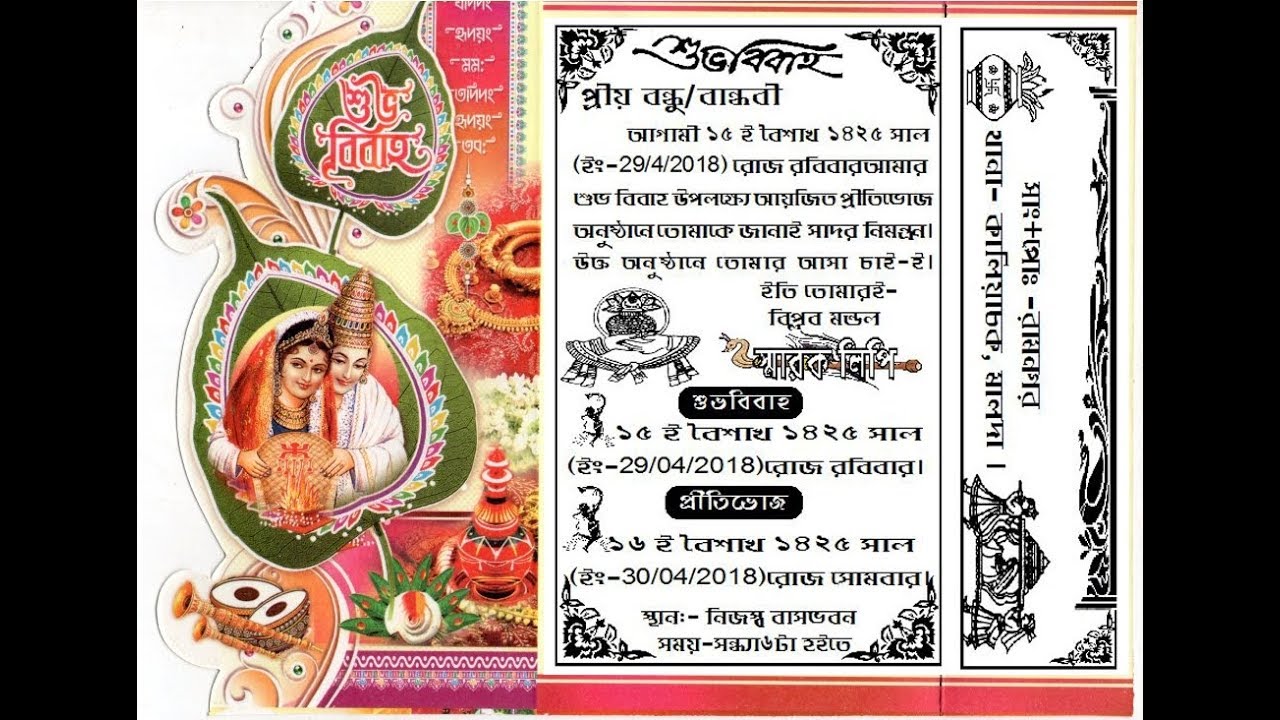 যদিদং
হৃদয়ং
মম:
তদিদং
হৃদয়ং
তব:
শুভ
বিবাহ
শুভবিবাহ
প্রীয় বন্ধু/বান্ধবী
আগামী ১৫ ই বৈশাখ ১৪২৫ সাল
(ইং-29/4/2018) রোজ রবিবারআমার
শুভ বিবাহ উপলক্ষ্যে আয়জিত প্রীতিভোজ
অনুষ্ঠানে তোমাকে জানাই সাদর নিমন্ত্রন।
উক্ত অনুষ্ঠানে তোমার আসা চাই-ই।
ইতি তোমারই-
বিপ্লব মন্ডল
স্মারক লিপি
শুভবিবাহ
১৫ ই বৈশাখ ১৪২৫ সাল
(ইং-29/04/2018)রোজ রবিবার।
প্রীতিভোজ
১৬ ই বৈশাখ ১৪২৫ সাল
(ইং-30/04/2018)রোজ সোমবার।
স্থানঃ- নিজস্ব বাসভবন
সময়-সন্ধ্যা৬টা হইতে
সাং+পোঃ -রামনগর
থানা- কালিয়াচক, মালদা ।